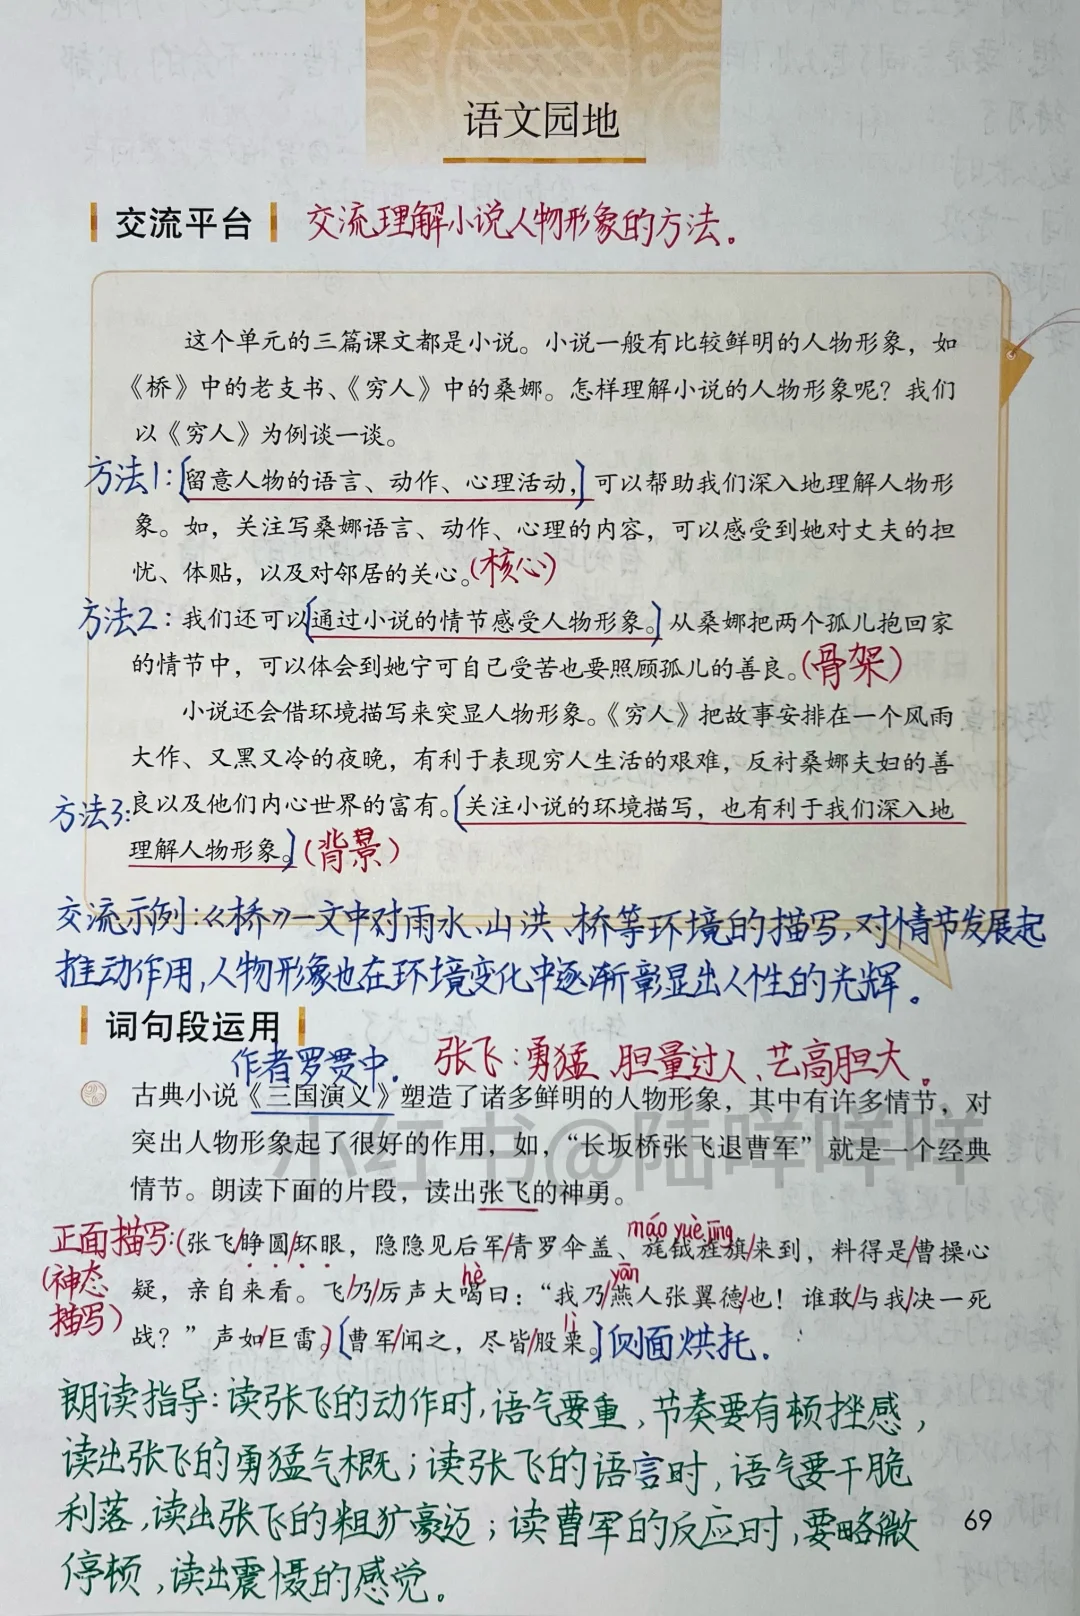 语文园地
交流平台 交流理解小说人物形象的方法。
这个单元的三篇课文都是小说。小说一般有比较鲜明的人物形象，如
《桥》中的老支书、《穷人》中的桑娜。怎样理解小说的人物形象呢？我们
以《穷人》为例谈一谈。
方法1：[留意人物的语言、动作、心理活动，]可以帮助我们深入地理解人物形
象。如，关注写桑娜语言、动作、心理的内容，可以感受到她对丈夫的担
忧、体贴，以及对邻居的关心。(核心)
方法2：我们还可以[通过小说的情节感受人物形象。]从桑娜把两个孤儿抱回家
的情节中，可以体会到她宁可自己受苦也要照顾孤儿的善良。(骨架)
小说还会借环境描写来突显人物形象。《穷人》把故事安排在一个风雨
大作、又黑又冷的夜晚，有利于表现穷人生活的艰难，反衬桑娜夫妇的善
方法3：良以及他们内心世界的富有。[关注小说的环境描写，也有利于我们深入地
理解人物形象。](背景)
交流示例：《桥》一文中对雨水、山洪、桥等环境的描写，对情节发展起
推动作用，人物形象也在环境变化中逐渐彰显出人性的光辉。
词句段运用
作者罗贯中。 张飞：勇猛、胆量过人、艺高胆大。
古典小说《三国演义》塑造了诸多鲜明的人物形象，其中有许多情节，对
突出人物形象起了很好的作用，如，“长坂桥张飞退曹军”就是一个经典
小红书@陆咩咩咩
情节。朗读下面的片段，读出张飞的神勇。
máo yuè jīng
正面描写：(张飞/睁圆/环眼，隐隐见后军/青罗伞盖、旄钺旌旗/来到，料得是/曹操心
(神态 hè yān
疑，亲自来看。飞/乃/厉声大喝曰：“我乃/燕人张翼德/也！谁敢/与我/决一死
描写) lì
战？”声如/巨雷。)[曹军/闻之，尽皆/股栗。]侧面烘托。
朗读指导：读张飞的动作时，语气要重，节奏要有顿挫感，
读出张飞的勇猛气概；读张飞的语言时，语气要干脆
利落，读出张飞的粗犷豪迈；读曹军的反应时，要略微
69
停顿，读出震慑的感觉。